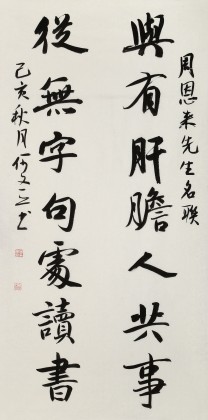 周恩来先生名联
與有肝膽人共事
從無字句處讀書
己亥秋月何文书